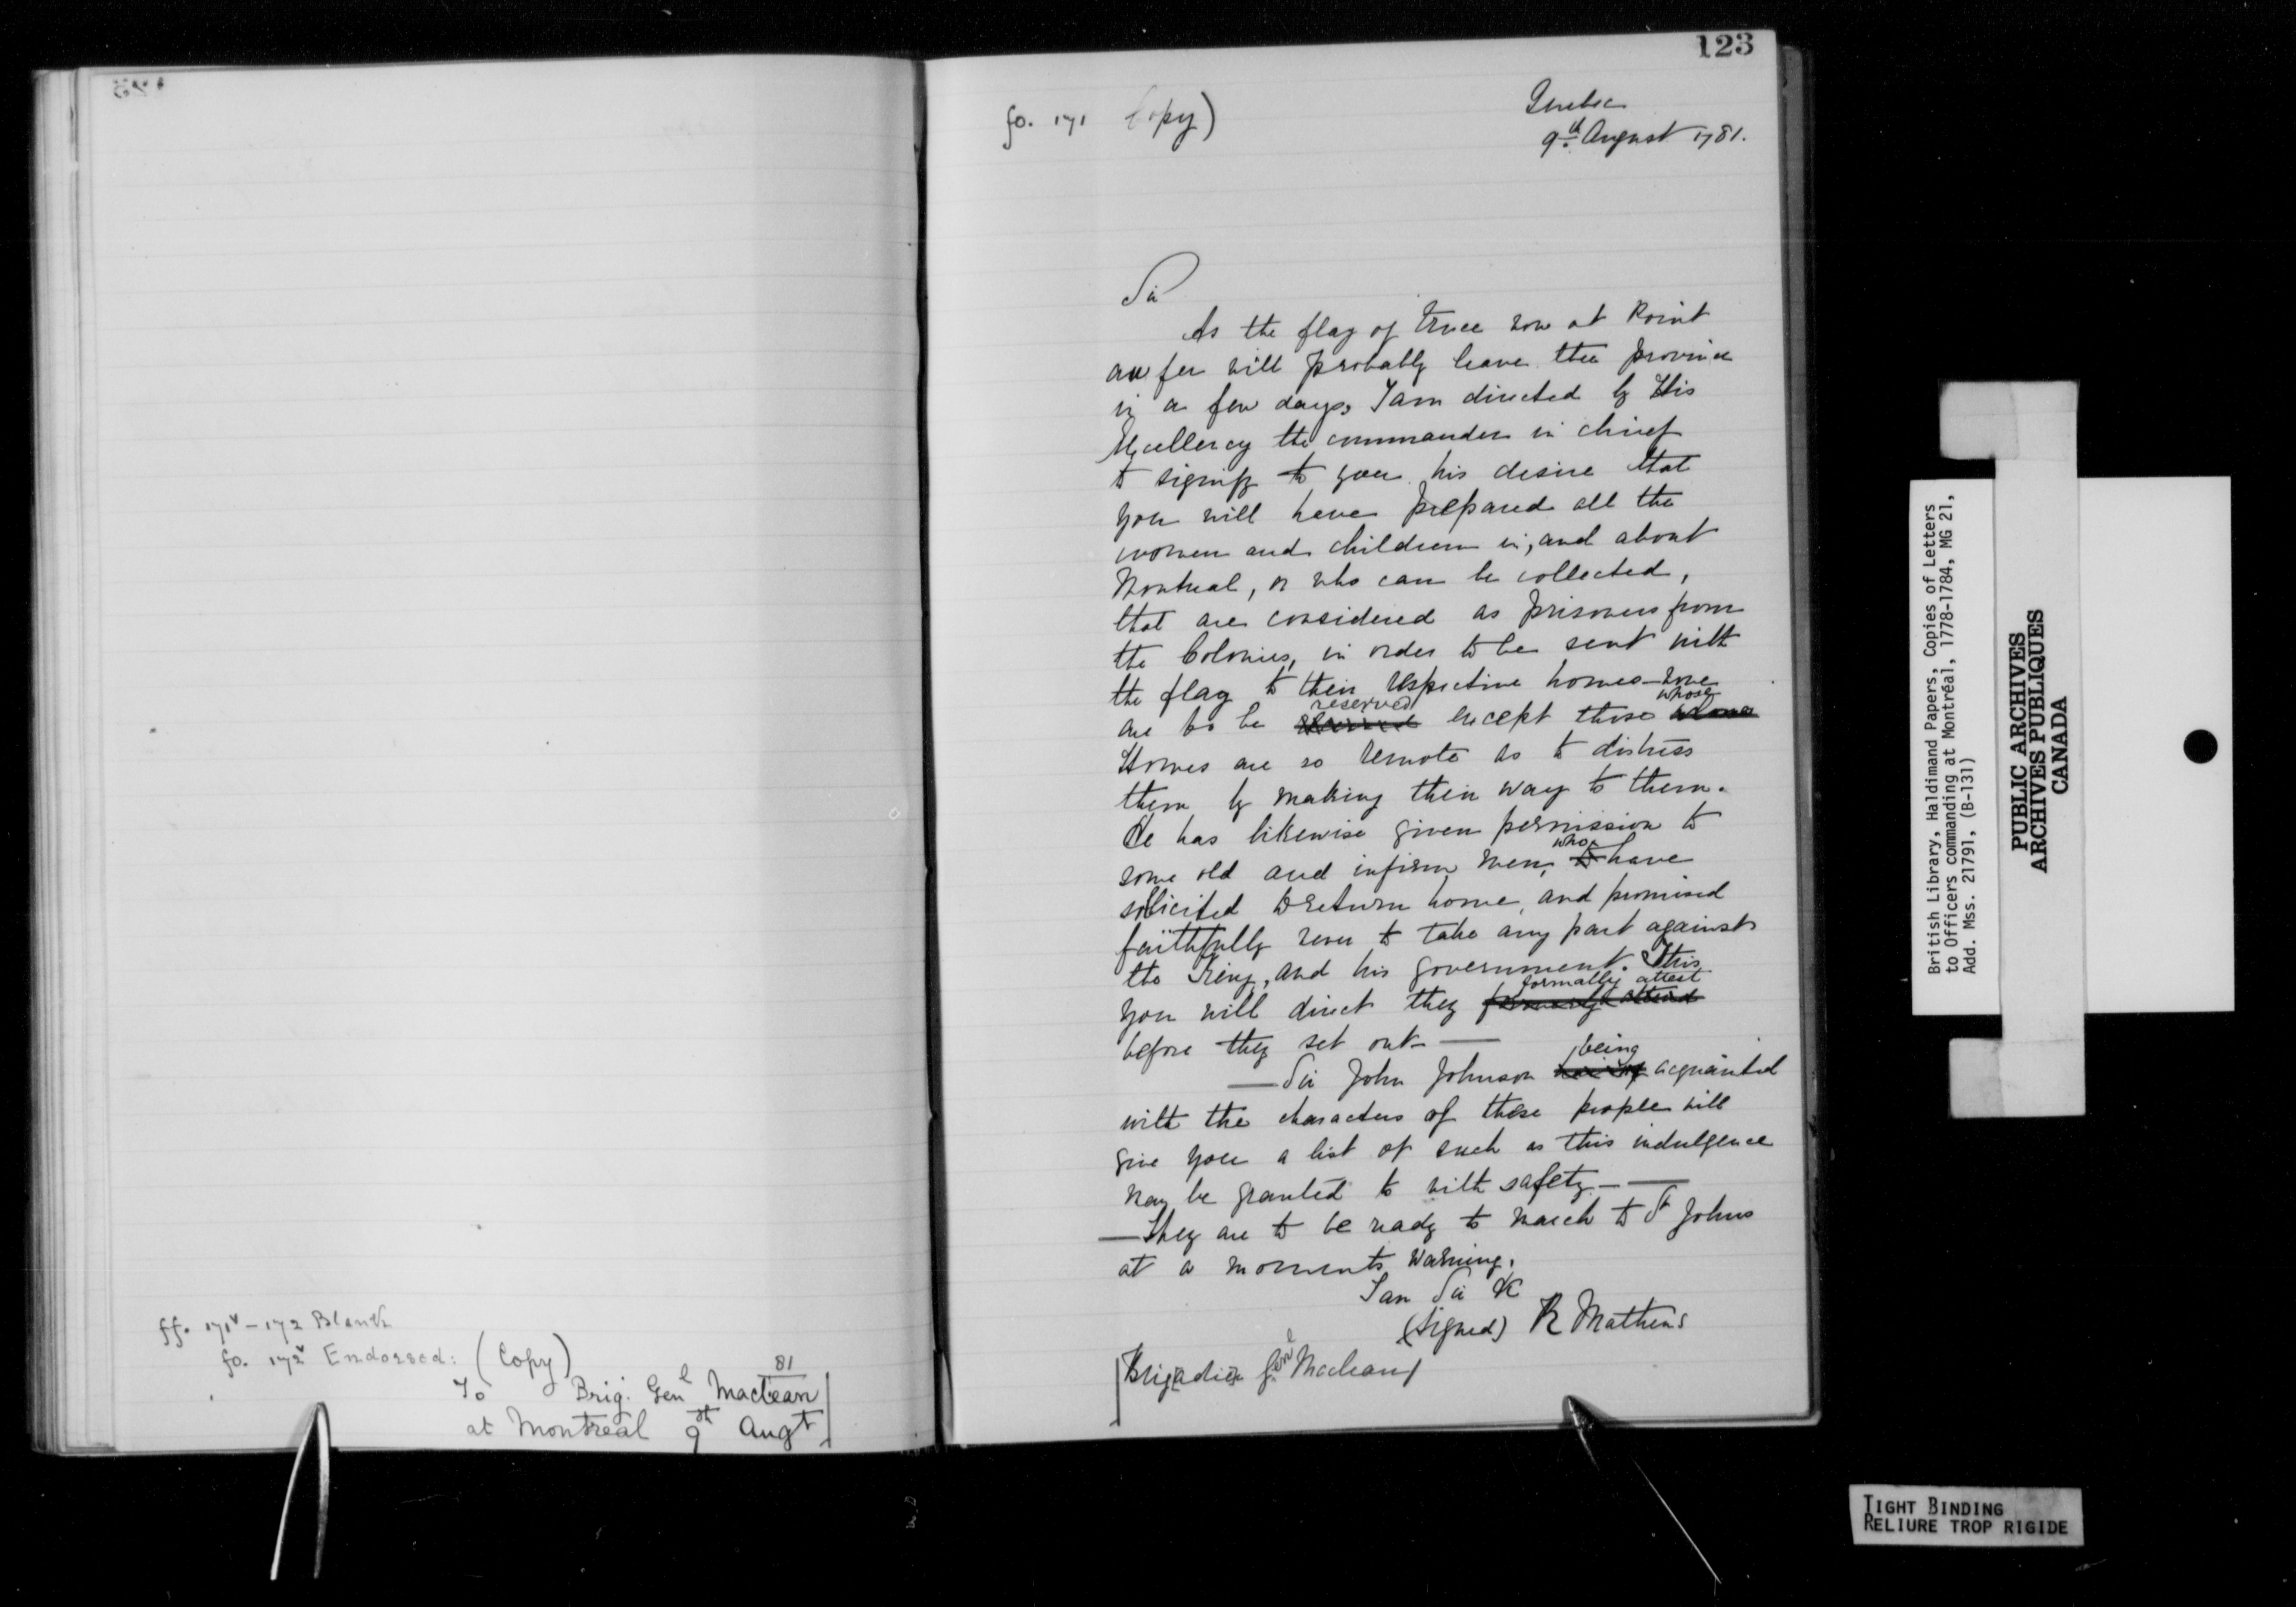 123
fo. 171 Copy)
Quebec
9th August 1781.
Sir
As the flag of Truce now at Point
au fer will probably leave the province
in a few days, I am directed by His
Excellency the commander in chief
to signify to you his desire that
you will have prepared all the
women and children in, and about
Montreal, or who can be collected,
that are considered as prisoners from
the Colonies, in order to be sent with
the flag to their respective homes - none
are to be reserved except those whose
Homes are so remote as to distress
them by making their way to them.
He has likewise given permission to
some old and infirm men, who have
solicited to return home, and promised
faithfully never to take any part against
the King, and his government. This
you will direct they formally attest
before they set out —
— Sir John Johnson being acquainted
with the characters of these people will
give you a list of such as this indulgence
may be granted to with safety — —
— They are to be ready to march to St Johns
at a moments warning.
I am Sir &c
(Signed) R Mathews
Brigadier Genl Maclean
ff. 171v - 172 Blank
fo. 172v Endorsed: (Copy)
81
To Brig. Genl Maclean
at Montreal 9th Augt
British Library, Haldimand Papers, Copies of Letters
to Officers commanding at Montréal, 1778-1784, MG 21,
Add. Mss. 21791, (B-131)
PUBLIC ARCHIVES
ARCHIVES PUBLIQUES
CANADA
TIGHT BINDING
RELIURE TROP RIGIDE